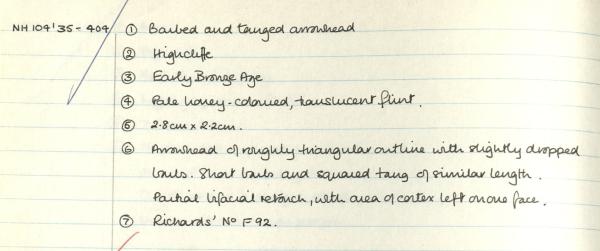 NH 104'35-404 ① Barbed and tanged arrowhead
② Highcliffe
③ Early Bronze Age
④ Pale honey-coloured, translucent flint.
⑤ 2.8cm x 2.2cm.
⑥ Arrowhead of roughly triangular outline with slightly dropped
barbs. Short barbs and squared tang of similar length.
Partial bifacial retouch, with area of cortex left on one face.
⑦ Richards' No F92.